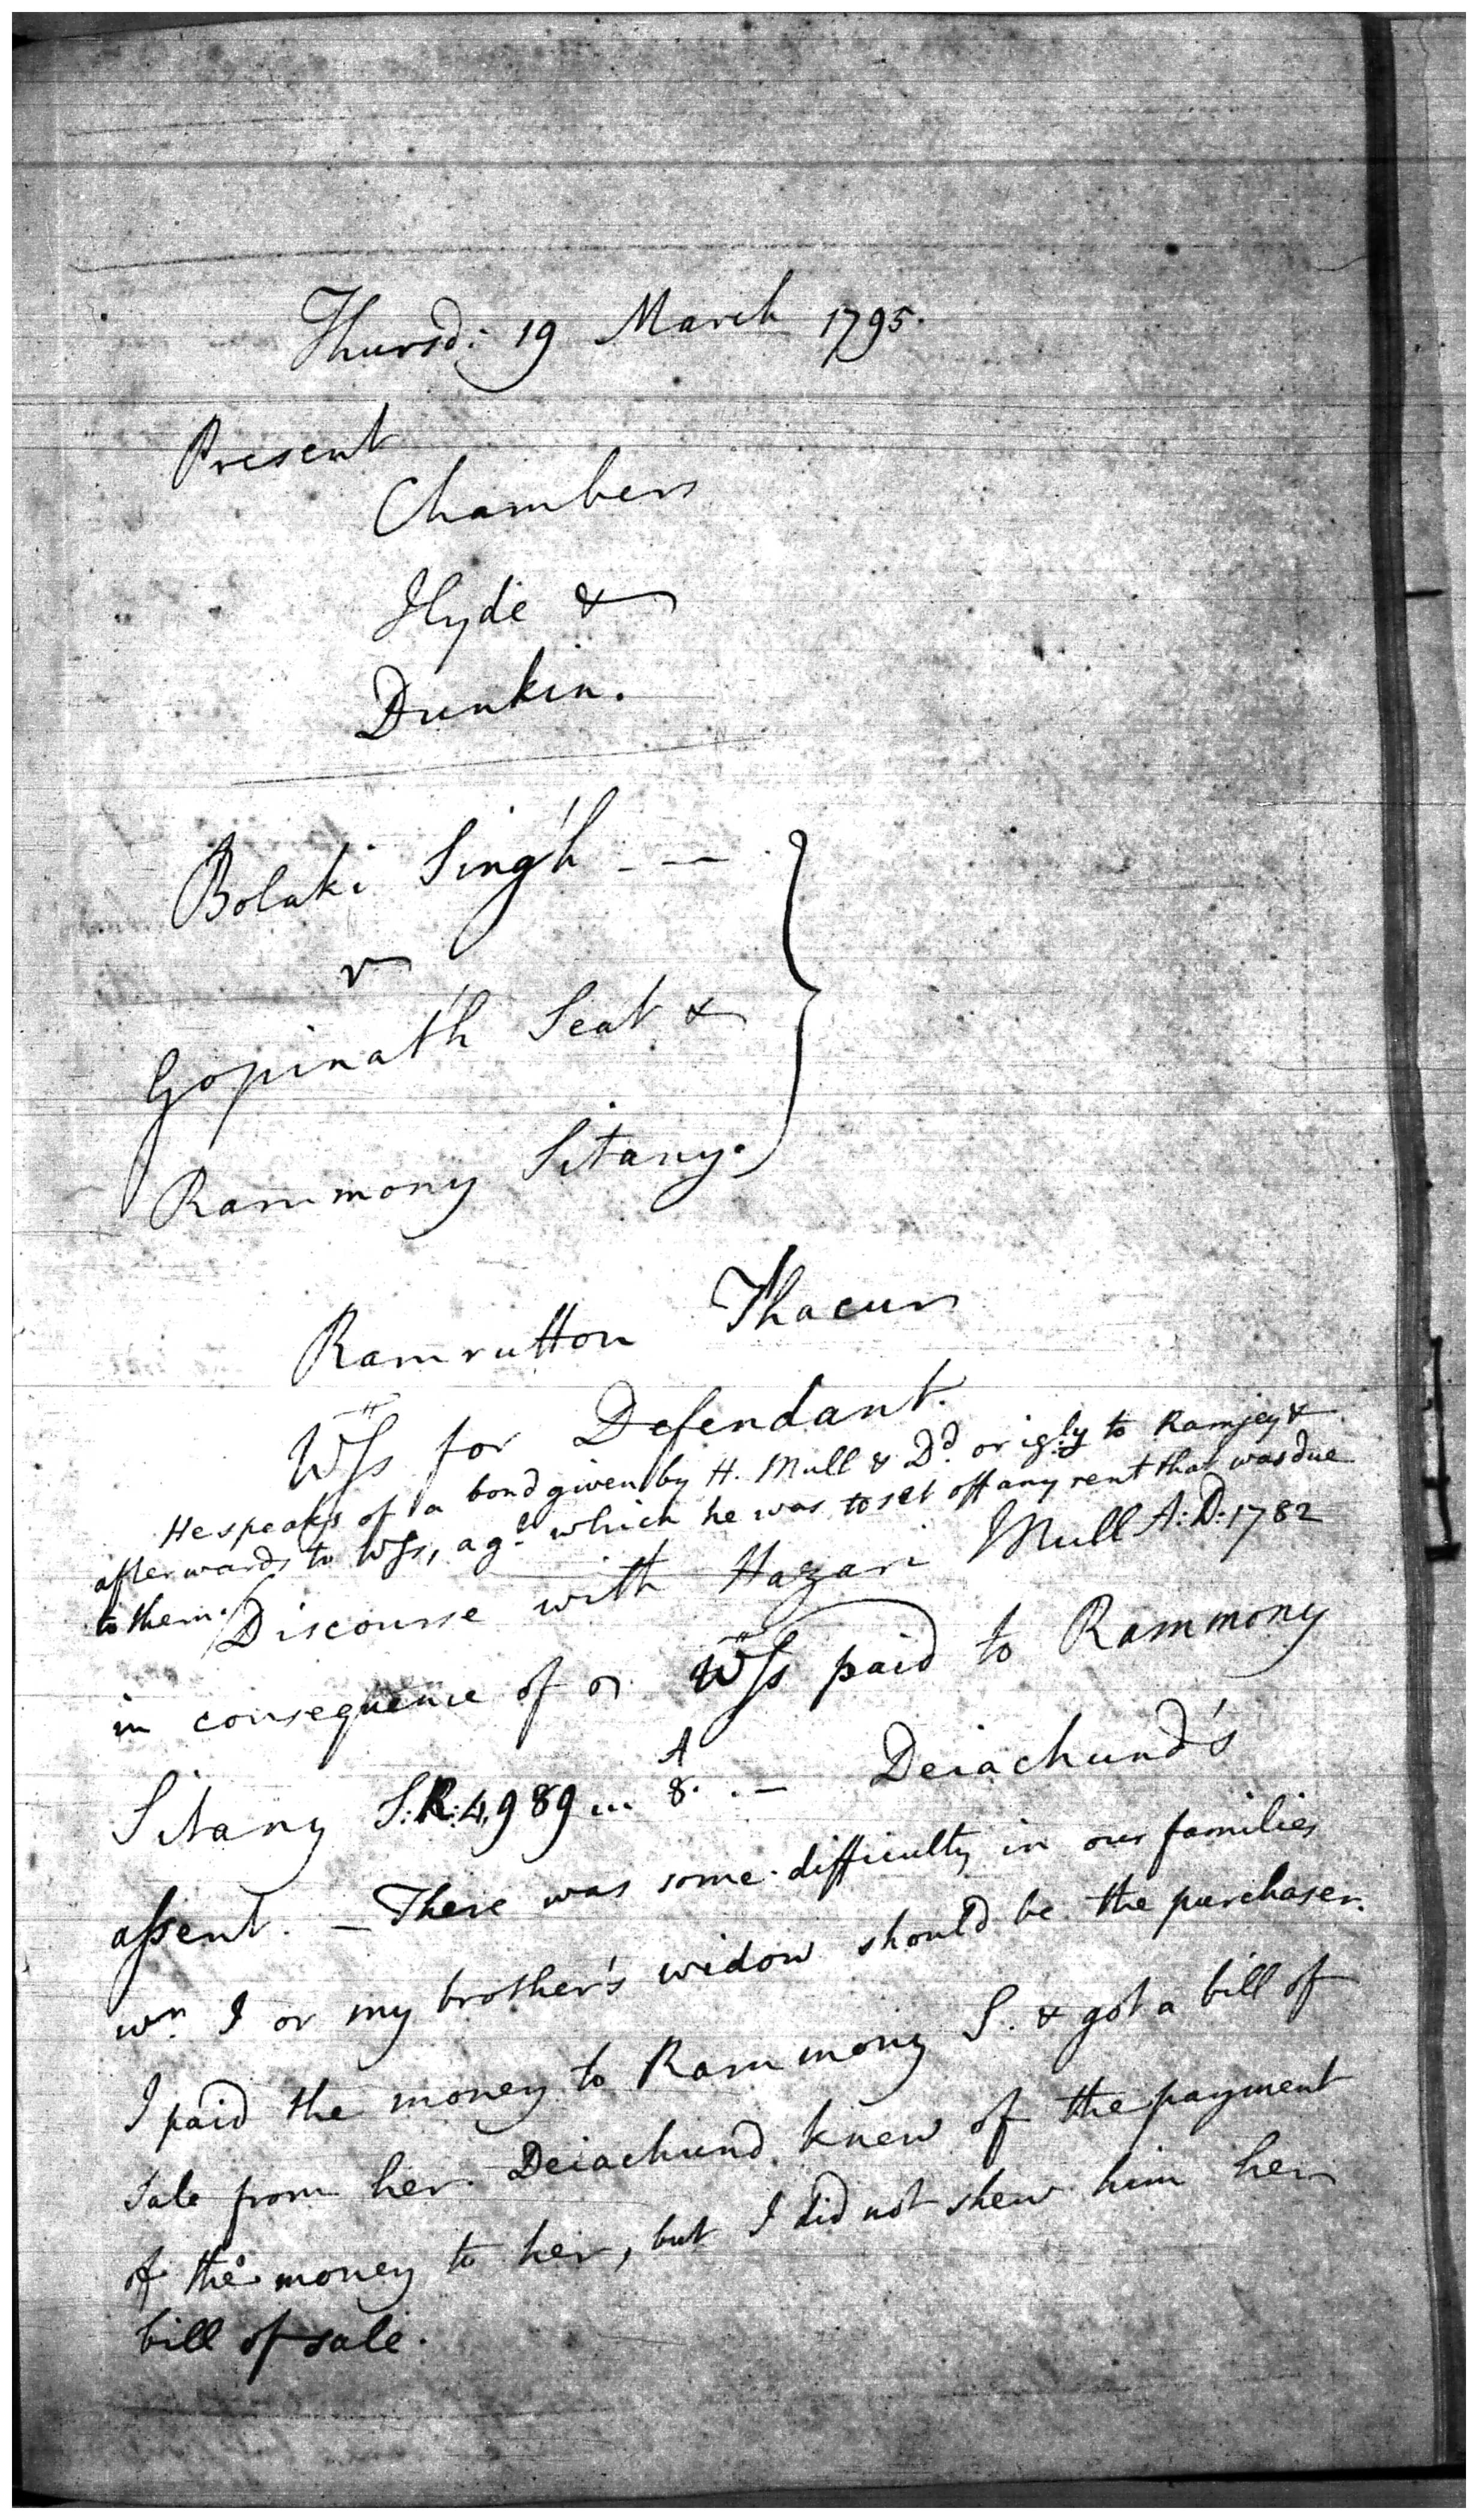 Thursd: 19 March 1795.
Present
Chambers
Hyde &
Dunkin.
Bolaki Sing'h - —
v
Gopinat'h Seat &
Rammony Sitany.
Ramrutton Thacur
Wss for Defendant.
He speaks of a bond given by H. Mull & Dd. origly to Ramjey &
afterwards to Wss, agt which he was to set off any rent that was due
to them. Discourse with Hazari Mull A:D:1782
in consequence of Wss paid to Rammony
Sitany S:R:4,989 ... 8. A . — Deiachund's
assent. — There was some difficulty in our families
wn I or my brother's widow should be the purchaser.
I paid the money to Rammony S. & got a bill of
sale from her. Deiachund knew of the payment
of the money to her, but I did not shew him her
bill of sale.